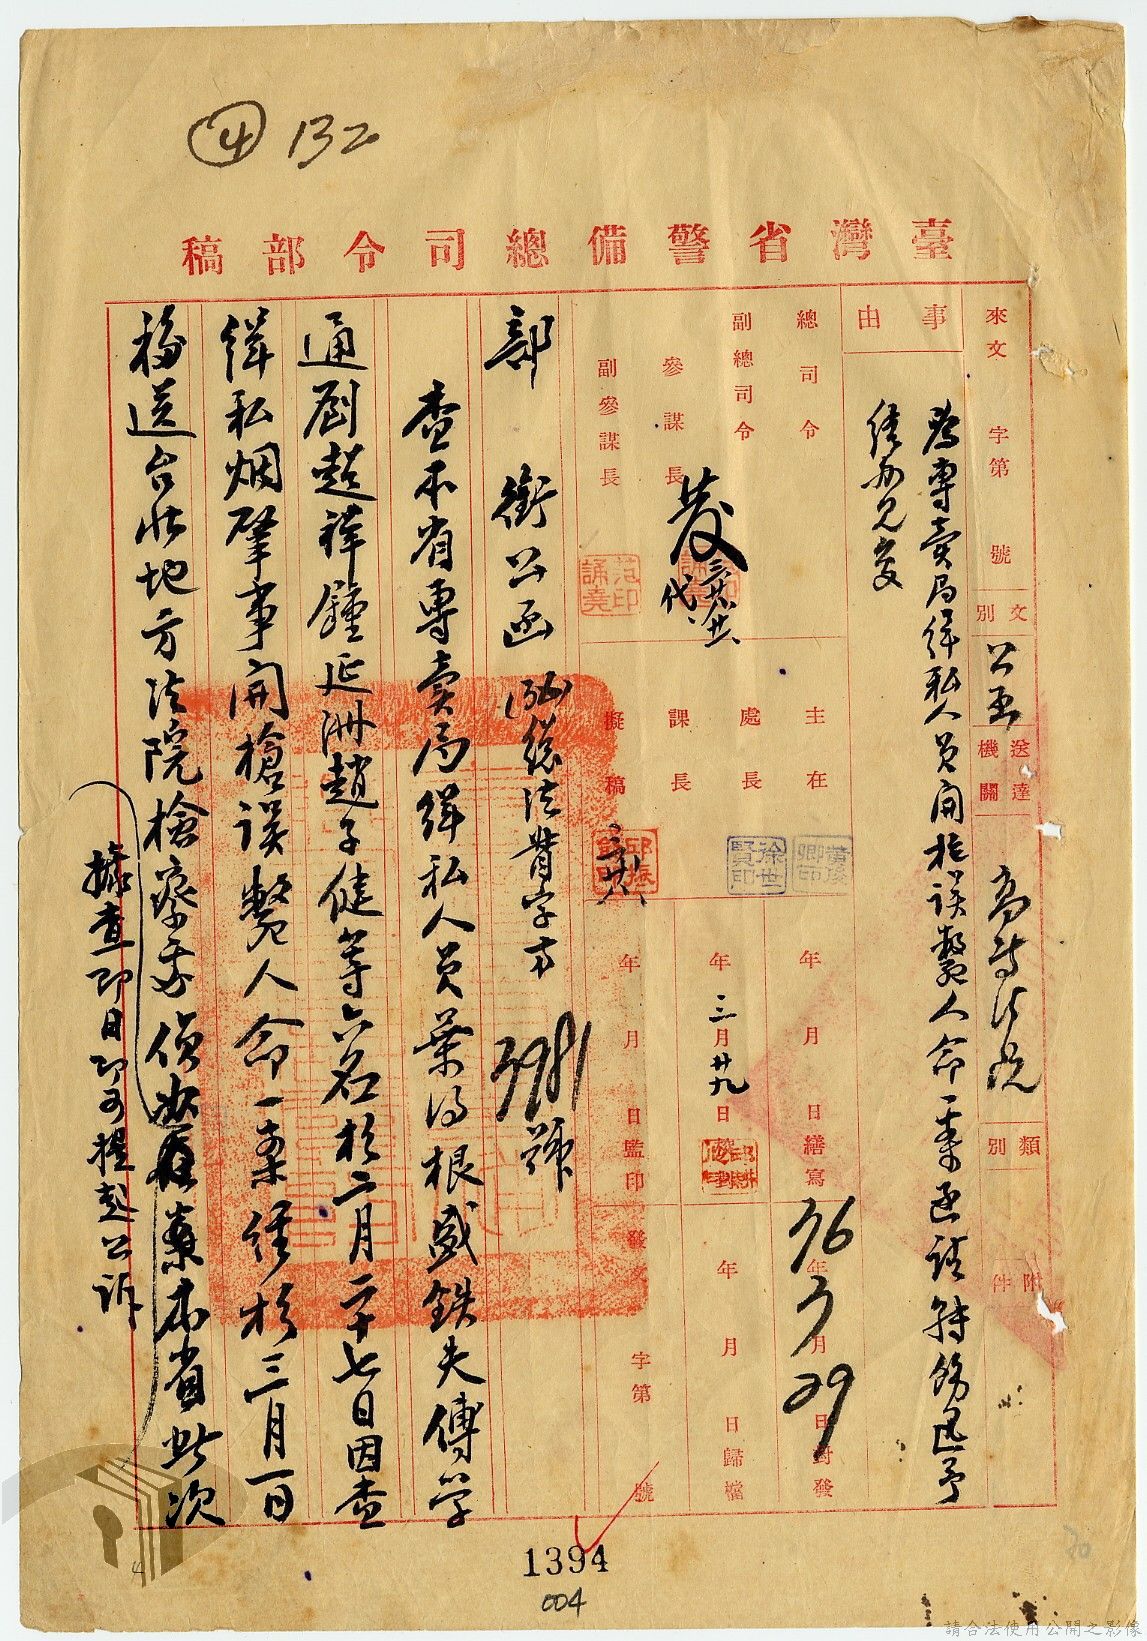 ④ 132
臺灣省警備總司令部稿
來文 字第 號
文別 公函
送達機關 高等法院
類別
附件
事由
為專賣局緝私人員開槍誤斃人命一案函請轉飭迅予
偵辦見復
總司令
副總司令
參謀長
副參謀長
代
范誦堯印
主任
處長
課長
擬稿
徐世賢印
年 月 日繕寫
年三月廿九日校對
年 月 日監印
36年3月29日封發
年 月 日歸檔
發文 字第 號
部銜公函 總法督字第3981號
查本省專賣局緝私人員葉得根盛鉄夫傅學
通劉超祥鍾延洲趙子健等六名於二月二十七日因查
緝私烟肇事開槍誤斃人命一案經於三月一日
移送台北地方法院檢察處偵辦在案本省此次
據查即日即可提起公訴
1394
004
請合法使用公開之影像